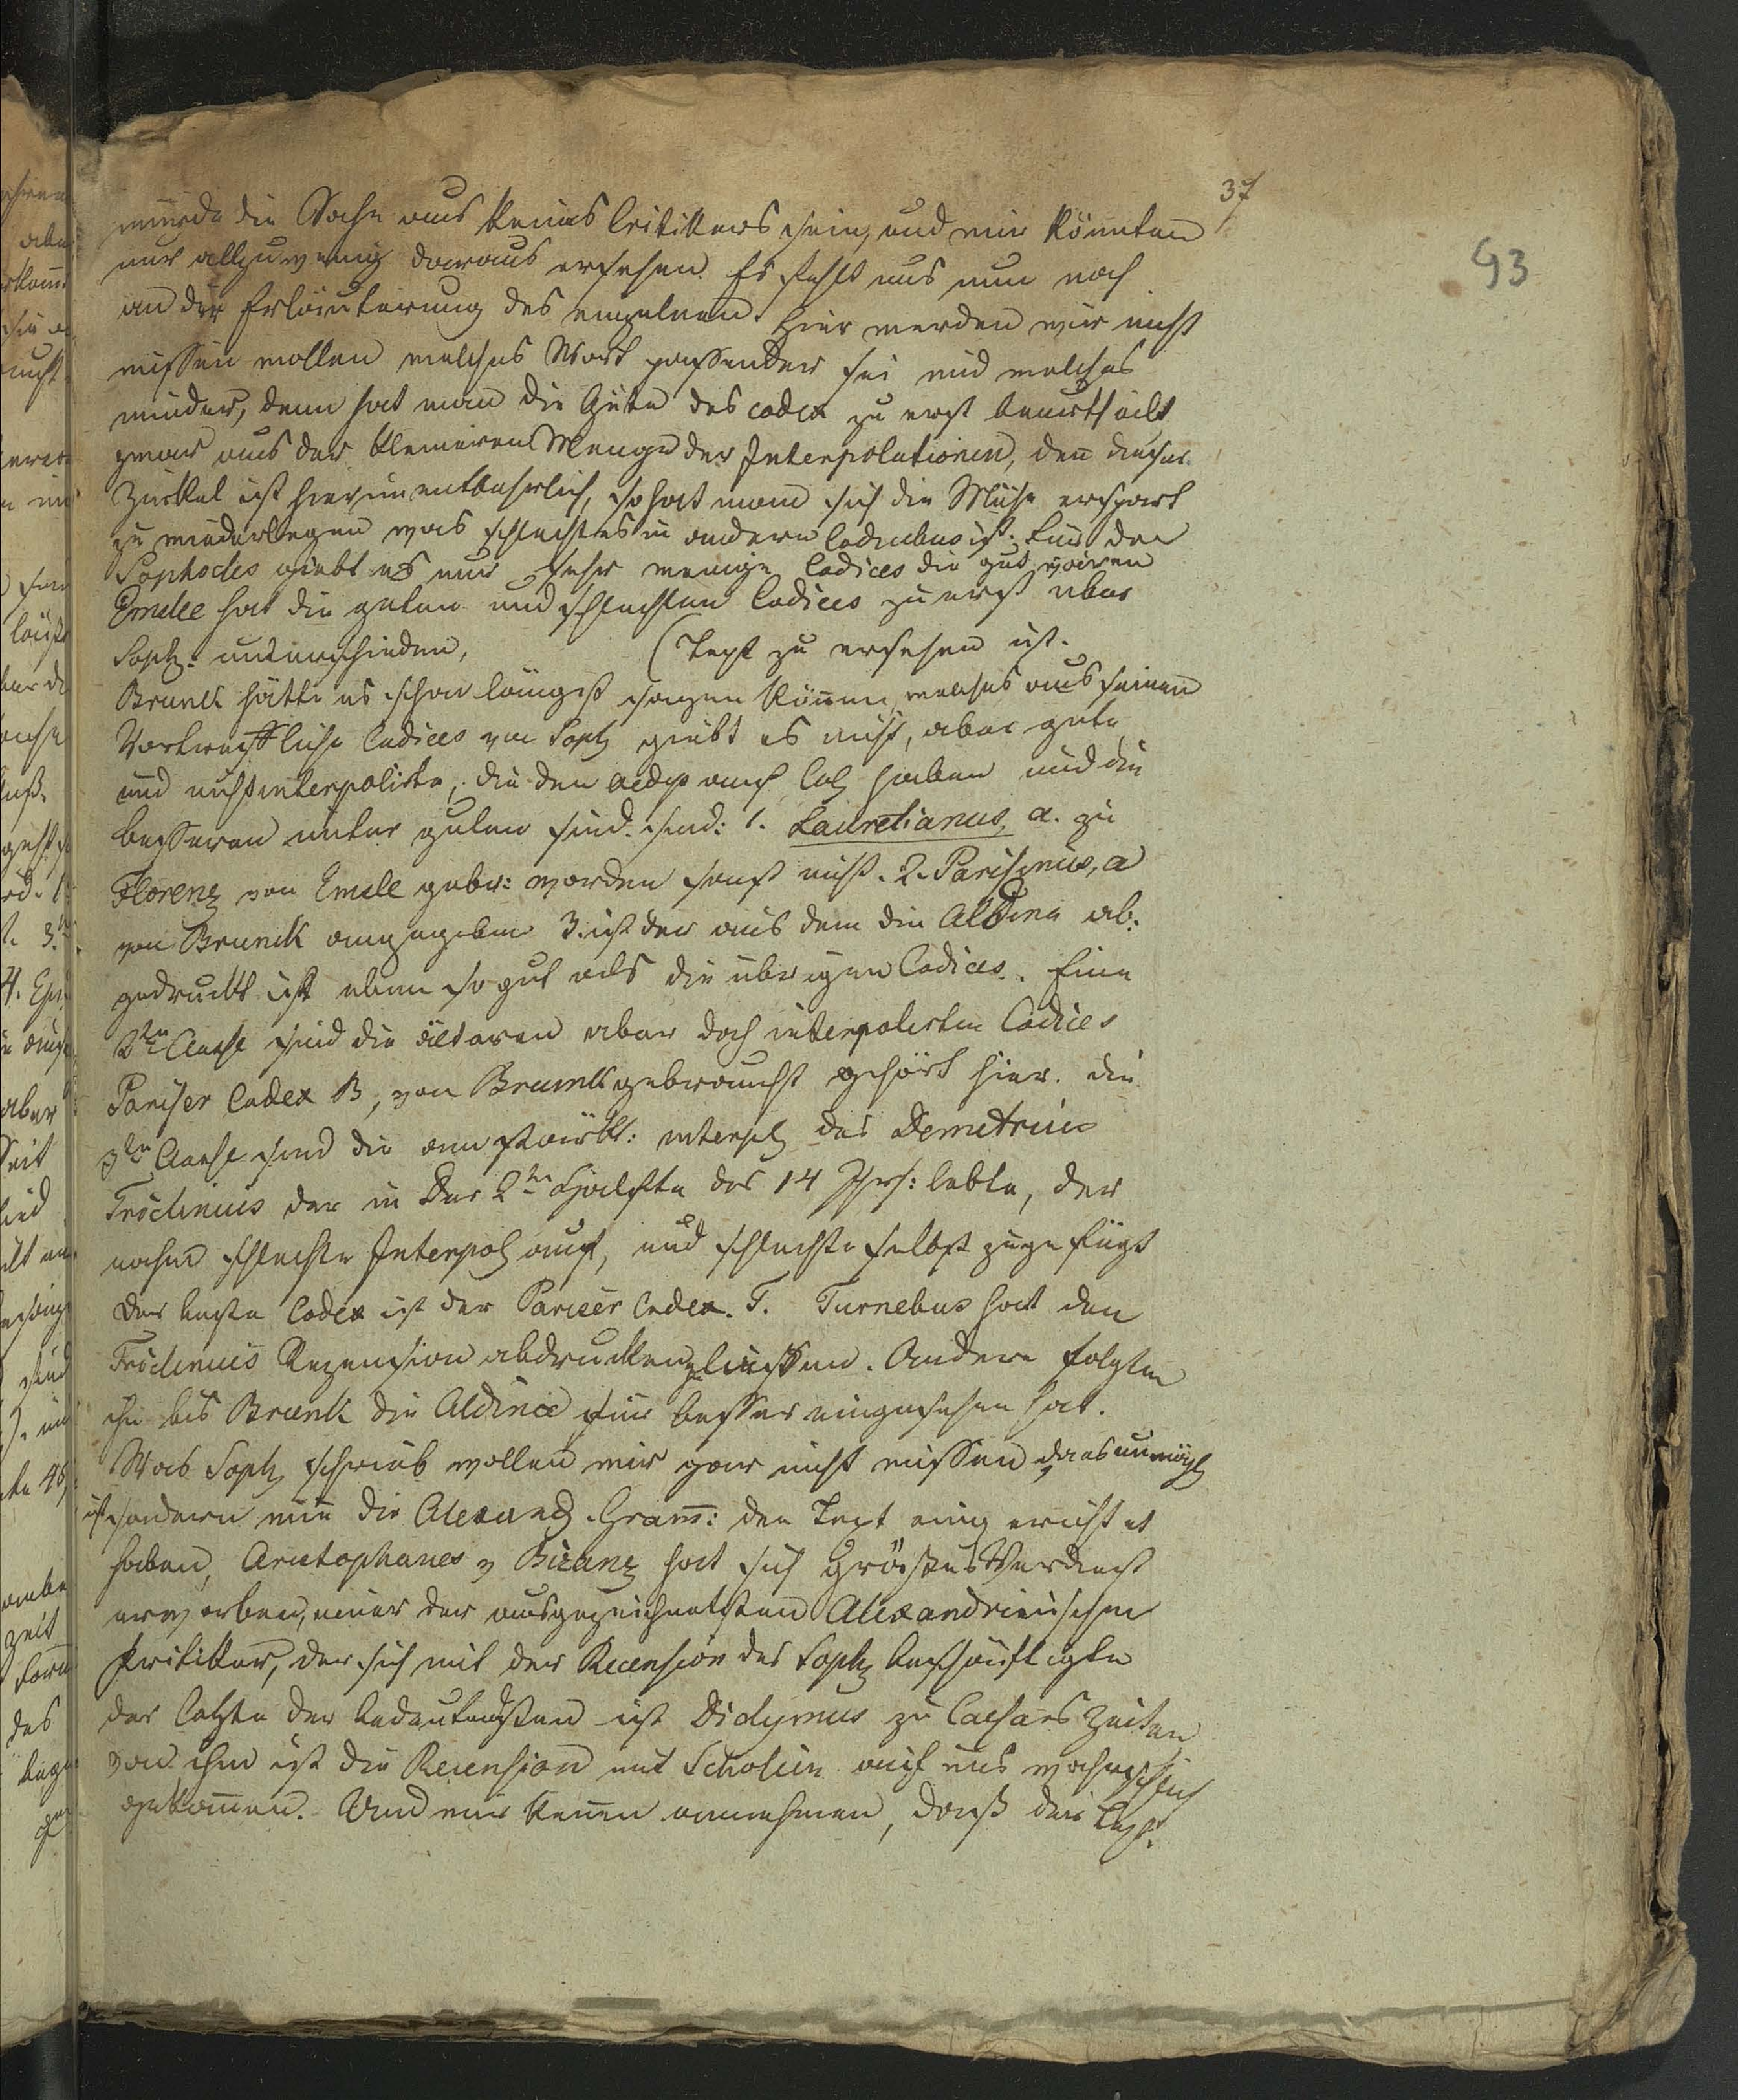 37
93
würde die Sache eines keines Critikers sein, und wir könnten
nur allzuwenig daraus ersehen. Es fehlt uns nun noch
an der Erläuterung des einzelnen. Hier werden wir nicht
wissen wollen welches Wort passender sei und welches
minder, denn hat man die Güte des codex zu erst beurtheilt
zwar aus der kleineren Menge der Interpolationen, den dieser
Zirkel ist hier unentbehrlich, so hat man sich die Mühe erspart
zu wiederlegen was schlechtes in andern Codicibus ist. Für den
Sophocles giebt es nur sehr wenige Codices die gut wären
Emslee hat die guten und schlechten Codices zu erst über
Soph. unterschieden, (Text zu ersehen ist.
Brunck hätte es schon längst sagen können, welches aus seinem
Vortreffliche Codices von Soph giebt es nicht, aber gute
und nicht interpolirte, die den Oedip auch Col haben und die
besseren unter guten sind. sind: 1. Lauretianus, a. zu
Florenz von Emsle gebr: worden sonst nicht. 2. Parisinus, a
von Brunck angegeben 3. ist der aus dem die Aldina ab:
gedruckt ist eben so gut als die übrigen Codices. Eine
2te Classe sind die älteren aber doch interpolirten Codices
Pariser Codex B, von Brunck gebraucht gehört hier. die
3te Classe sind die am stärkst: interpol des Demetrius
Triclinius der in der 2ten Hälfte des 14 Jhr: lebte, der
nahm schlechte Interpol auf, und schlechte selbst zugefügt
Der beste Codex ist der Pariser Codex. T. Turnebus hat den
Triclinius Rezension abdrucken liessen. Andere folgten
ihn bis Brunk die Aldina für besser eingesehen hat.
Was Soph schrieb wollen wir gar nicht wissen da es unmögl
ist sondern wie die Alexand. Gram: den Text eingerichtet
haben, Aristophanes v Bizanz hat sich größtes Verdienst
erworben, einer der ausgezeichnetsten Alexandrinischen
Kritiker, der sich mit der Recension des Soph beschäftigte
der letzte der bedeutendsten ist Didymus zu Caesars Zeiten
von ihm ist die Recension mit Scholien auf uns wahrschlich
gekommen. Und wir können annehmen, daß der